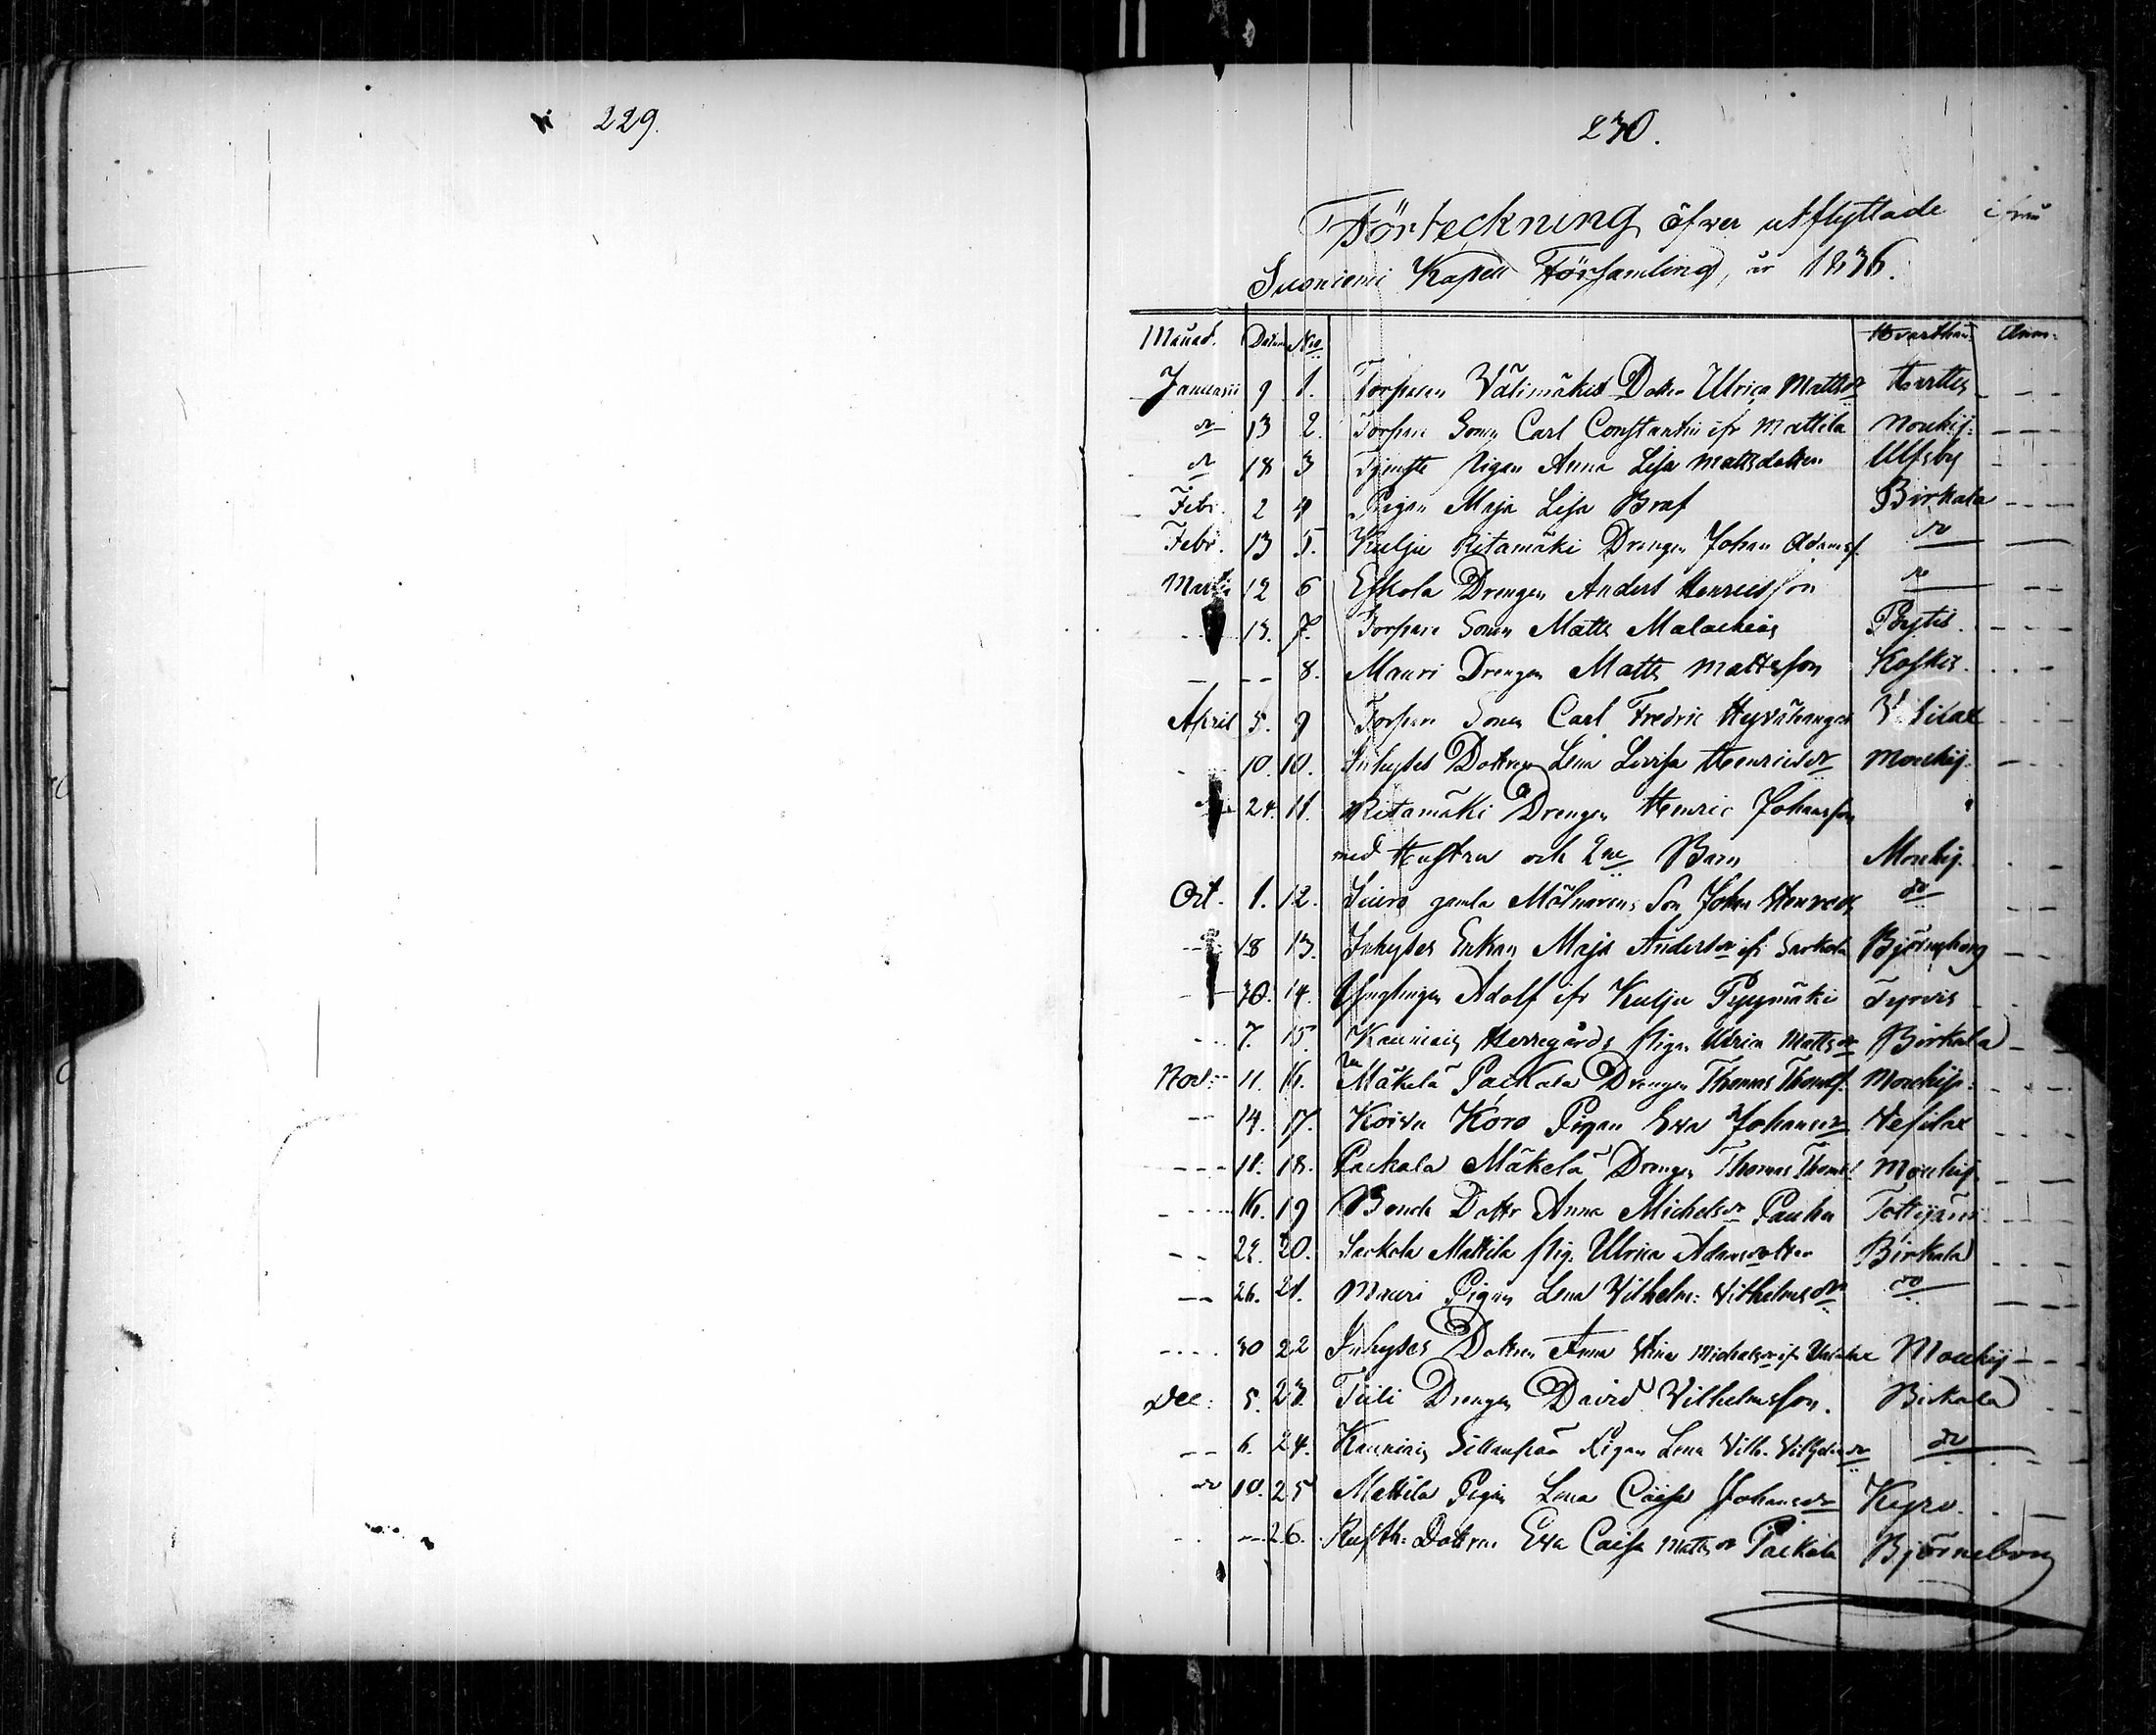 229.
230.
Förteckning öfver utflyttade ifrån
Suoniemi Kapell Församling, år 1836.
Månad. Datum No Hvarthän Anm:
Januarii 9 1. Torparen Välimäkis Dotter Ulrica Mattsdr
do 13 2. Torpare Sonen Carl Constantin ifr Mattila Mouhij:
do 18 3 Tjenste pigan Anna Lisa Mattsdotter Ulfsby
Febr. 2 4 Pigan Maja Lisa Graf Birkala
Febr. 13 5. Kulju Ritamäki Drengen Johan Adamsf. do
Martii 12 6 Eskola Drengen Anders Henricsson do
13. 7. Torpare Sonen Matts Malachias
8. Mauri Drengen Matts Mattsson Koskis.
April 5. 9 Torpare Sonen Carl Fredric Vesilax
10. 10. Inhyses Dottren Lena Lovisa Henricsdr Mouhij.
24. 11. Ritamäki Drengen Henric Johansson
med Hustru och 2ne Barn Mouhij.
Oct. 1. 12. Siuro gamla Mölnarens Son Johan do
18 13. Inhyses Enkan Maja Andersdr ifr Sarkola Björneborg
30. 14. Ynglingen Adolf ifr Kulju Pyymäki Tyrvis
7. 15. Kauniais Herregårds pigan Ulrica Mattsdr Birkala
Nov: 11. 16. Mäkelä Packala Drengen Thomas Thomsf. Mouhij:
14. 17. Koivu Koro Pigan Eva Johansdr Vesilax
11. 18. Packala Mäkelä Drengen Thomas Thomsf Mouhij.
16. 19 Bonde Dottr Anna Michelsdr Pauha Töttijärvi
22. 20. Sarkola Mattila pig. Ulrica Adamsdotter Birkala
26. 21. Mauri Pigan Lena Vilhelm: Vilhelmsdr do
30 22 Inhyses Dottren Anna Stina Michelsdr ifr Mouhij
Dec: 5. 23. Tiili Drengen David Vilhelmsson. Birkala
6. 24. Kauniais Sillanpää Pigan Lena Vilh. Vilhelmsdr do
do 10. 25 Mattila Pigan Lena Caisa Johansdr Kyro.
26. Rusth: Dottren Eva Caisa Mattsdr Packala Björneborg